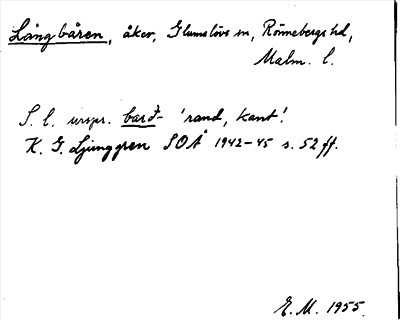 Långbåren, åker, Glumslövs sn, Rönnebergs hd,
Malm. l.
S. l. urspr. barð- 'rand, kant'.
K. G. Ljunggren SOÅ 1942-45 s. 52 ff.
E. M. 1955.